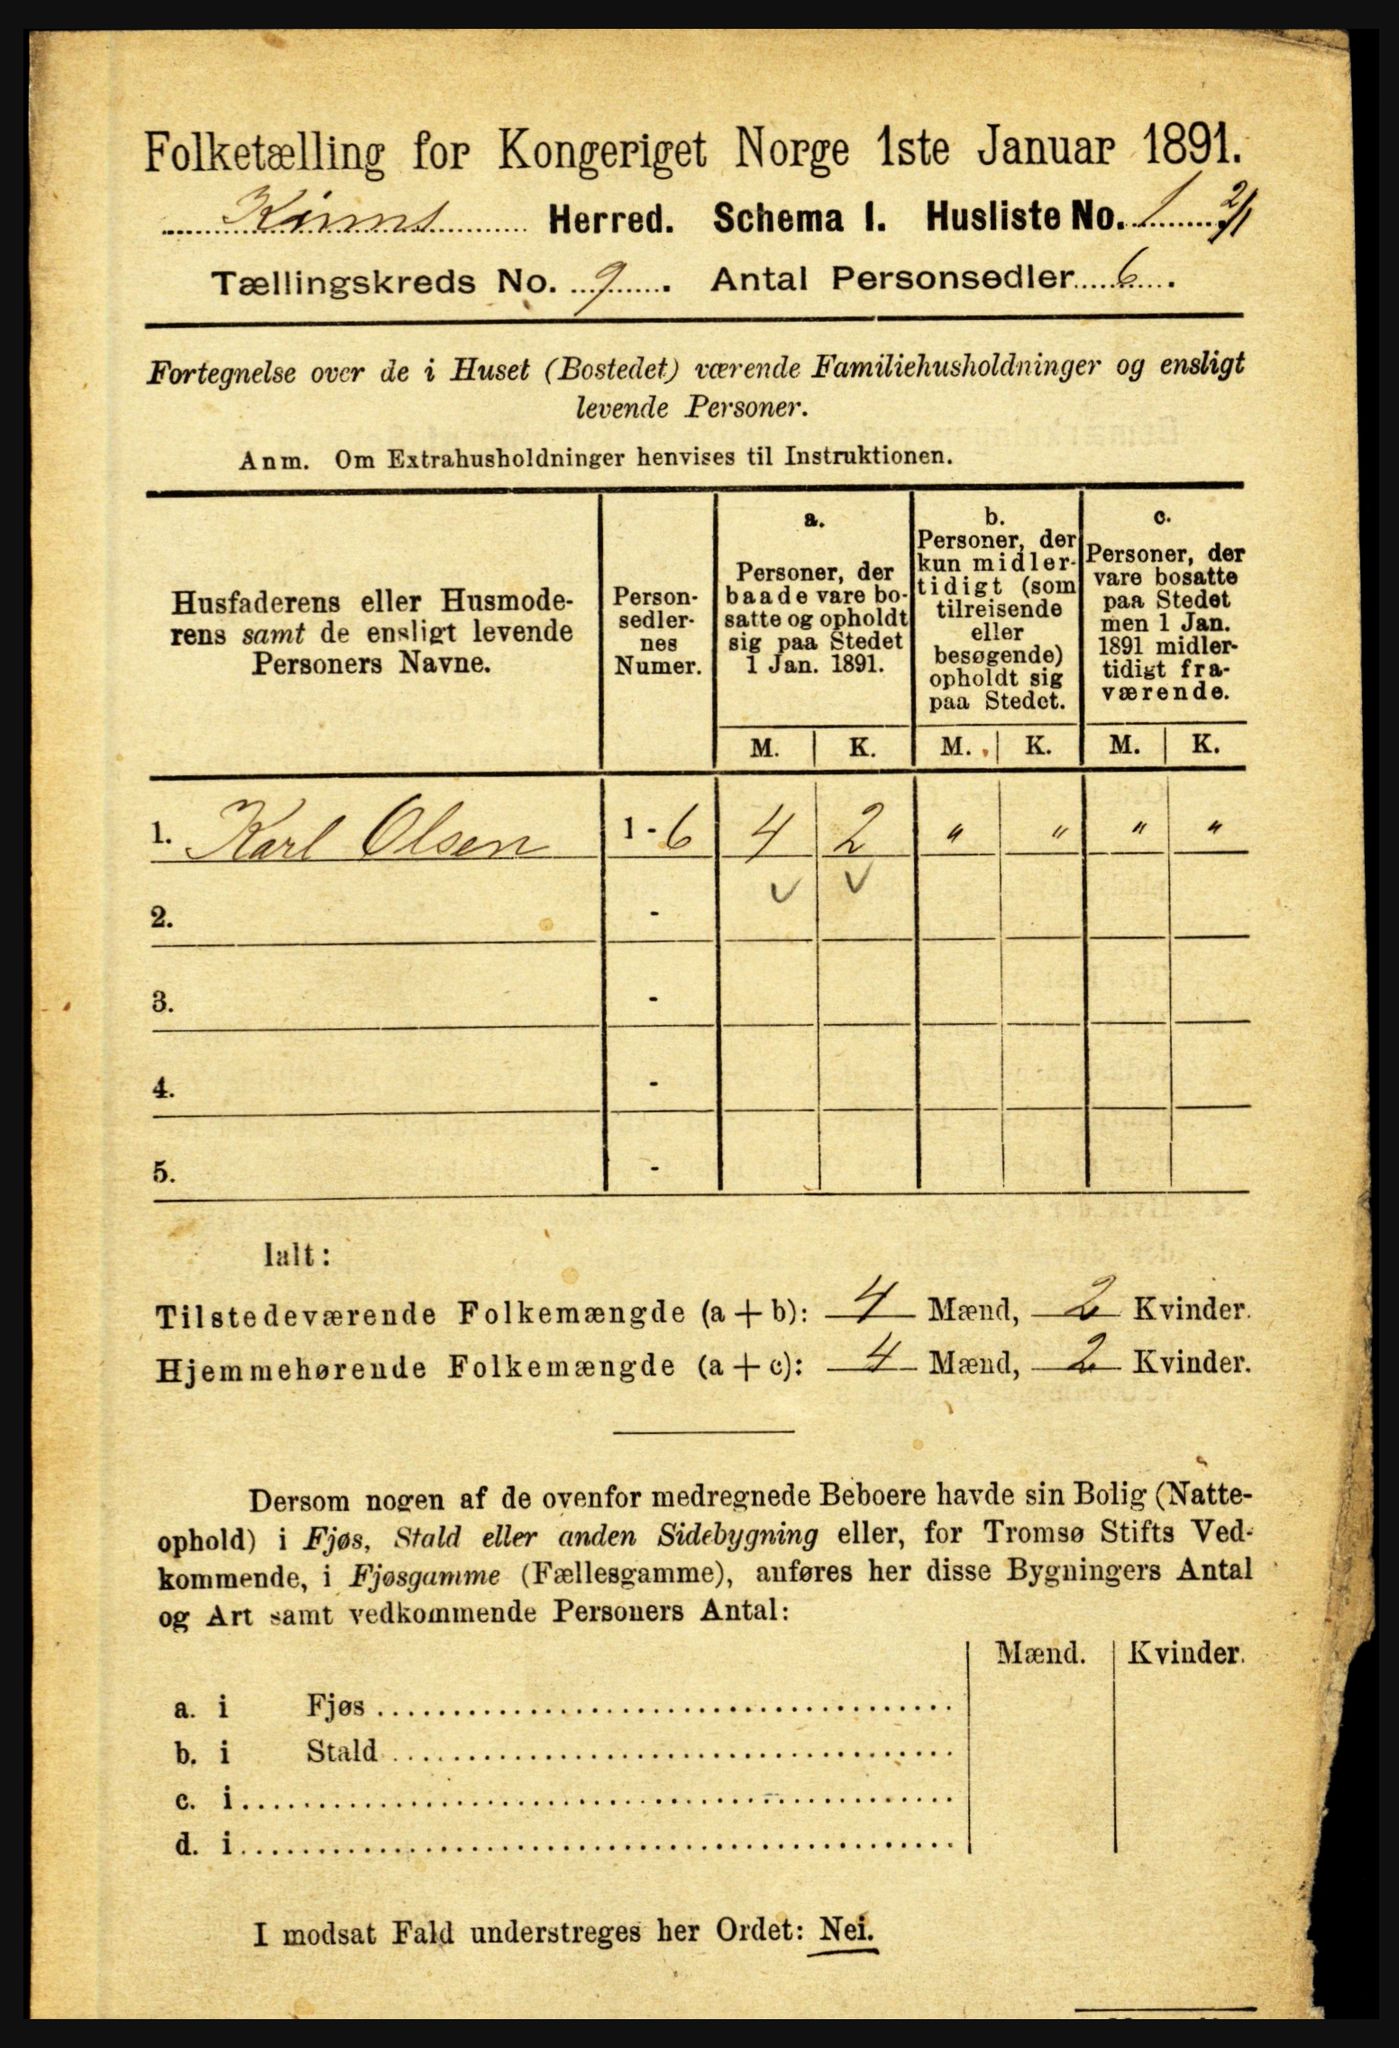 Folketælling for Kongeriget Norge 1ste Januar 1891.
Kinns Herred. Schema I. Husliste No. 1 2/1
Tællingskreds No. 9. Antal Personsedler 6.
Fortegnelse over de i Huset (Bostedet) værende Familiehusholdninger og ensligt
levende Personer.
Anm. Om Extrahusholdninger henvises til Instruktionen.
Husfaderens eller Husmode-
rens samt de ensligt levende
Personers Navne.
Person-
sedler-
nes
Numer.
a.
Personer, der
baade vare bo-
satte og opholdt
sig paa Stedet
1 Jan. 1891.
b.
Personer, der
kun midler-
tidigt (som
tilreisende
eller
besøgende)
opholdt sig
paa Stedet.
c.
Personer, der
vare bosatte
paa Stedet
men 1 Jan.
1891 midler-
tidigt fra-
værende.
M. K. M. K. M. K.
1. Karl Olsen 1 - 6 4 2 " " " "
2. -
3. -
4. -
5. -
Ialt:
Tilstedeværende Folkemængde (a + b): 4 Mænd, 2 Kvinder.
Hjemmehørende Folkemængde (a + c): 4 Mænd, 2 Kvinder.
Dersom nogen af de ovenfor medregnede Beboere havde sin Bolig (Natte-
ophold) i Fjøs, Stald eller anden Sidebygning eller, for Tromsø Stifts Ved-
kommende, i Fjøsgamme (Fællesgamme), anføres her disse Bygningers Antal
og Art samt vedkommende Personers Antal:
Mænd. Kvinder.
a. i Fjøs
b. i Stald
c. i
d. i
I modsat Fald understreges her Ordet: Nei.